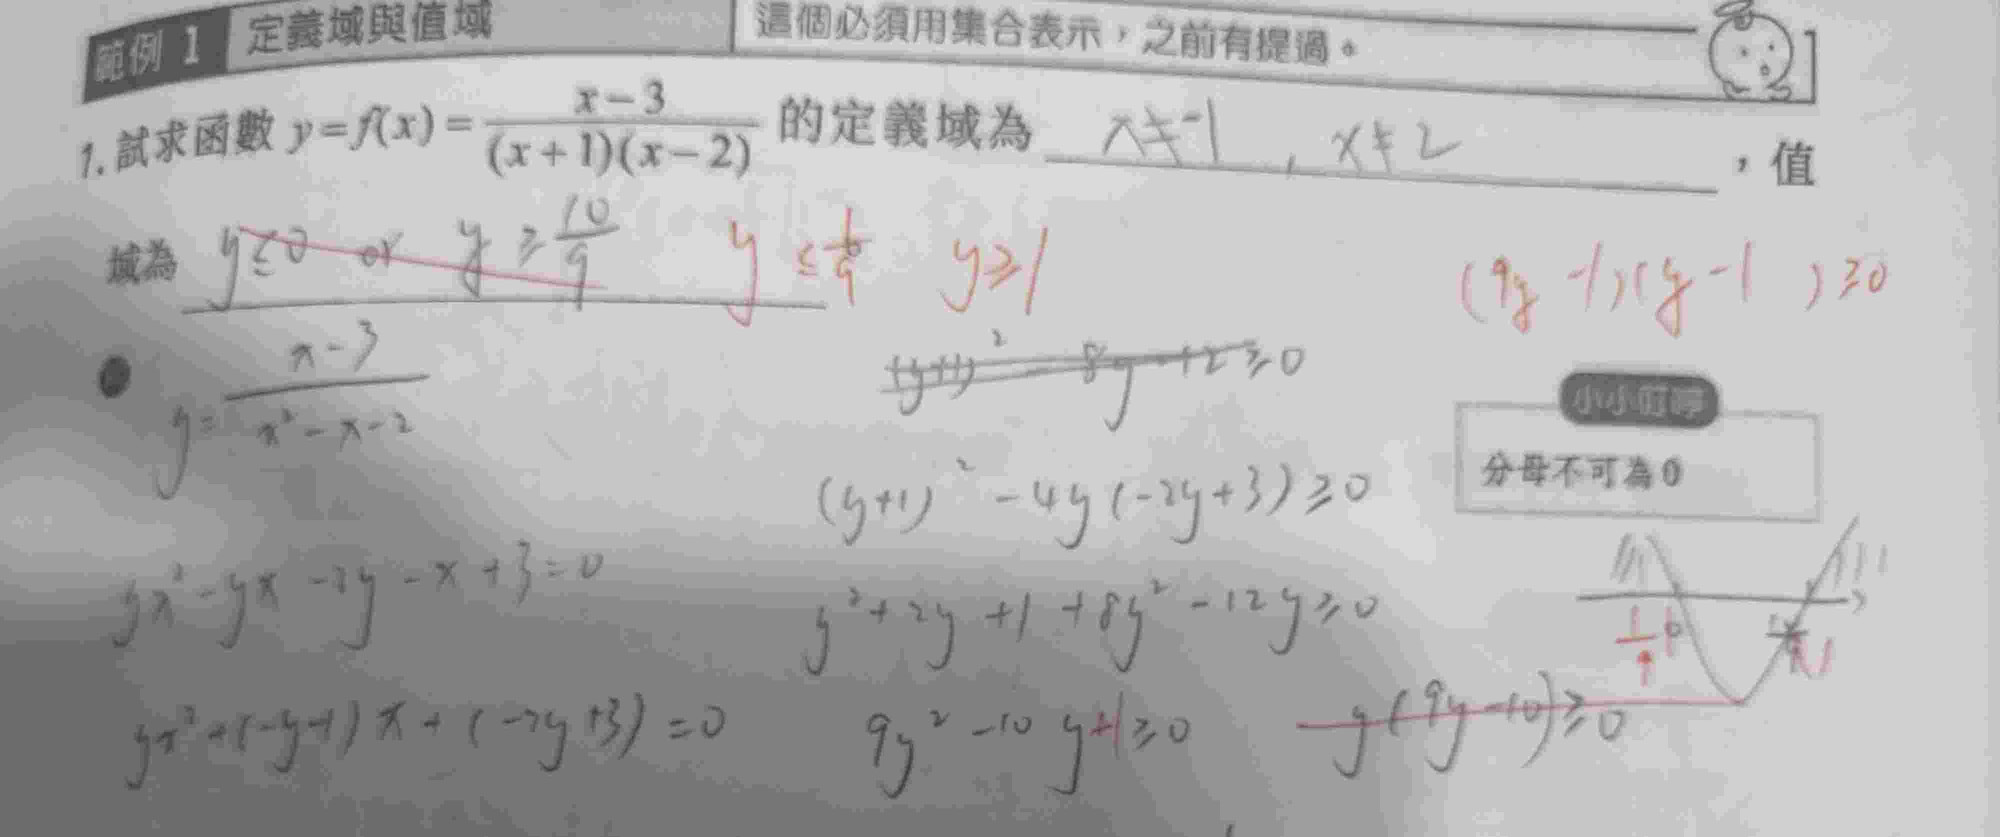 範例 1 定義域與值域 這個必須用集合表示，之前有提過。
1. 試求函數 y=f(x)=\frac{x-3}{(x+1)(x-2)} 的定義域為 x≠-1 , x≠2 ，值
域為 y≤0 or y≥\frac{10}{9} y≤\frac{1}{9} y≥1
(9y-1)(y-1)≥0
y=\frac{x-3}{x²-x-2}
(y+1)²-8y+12≥0
小小叮嚀
分母不可為0
(y+1)²-4y(-2y+3)≥0
yx²-yx-2y-x+3=0
y²+2y+1+8y²-12y≥0
yx²+(-y-1)x+(-2y+3)=0
9y²-10y+1≥0
y(9y-10)≥0